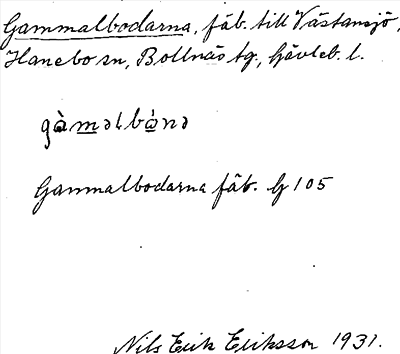 Gammalbodarna, fäb. till Västansjö,
Hanebo sn, Bollnäs tg., Gävleb. l.
gàməlbànə
Gammalbodarna fäb. G 105
Nils Erik Eriksson 1931.